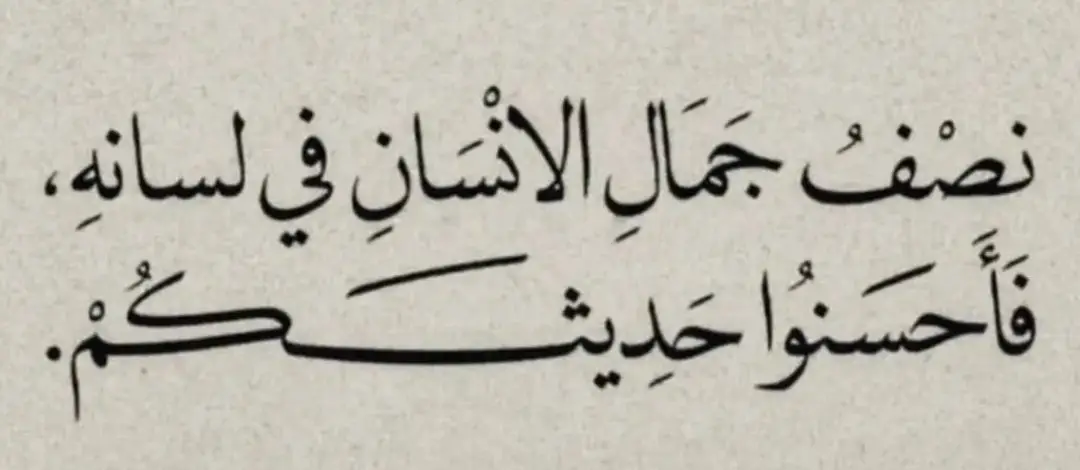 نصْفُ جَمَالِ الانْسَانِ في لسانهِ،
فَأَحسَنُوا حَدِيثكُمْ.